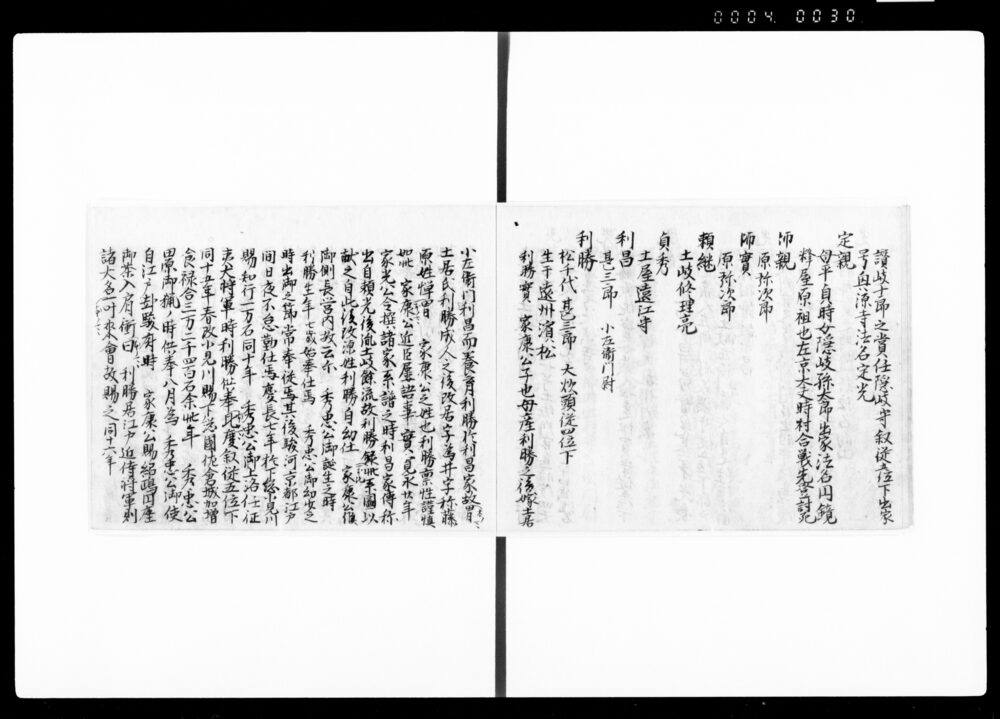 0004. 0030.
讃岐十郎之賞任隠岐守叙従五位下出家
号興源寺法名定光
定親
母平貞時女隠岐孫太郎出家法名円鏡
土屋原祖也左京大夫時村合戦先登討死
師親
原弥次郎
師實
原弥次郎
頼継
土岐修理亮
貞秀
土屋遠江守
利昌
甚三郎 小左衛門尉
利勝
松千代 甚三郎 大炊頭従四位下
生于遠州濱松
利勝實 家康公子也母産利勝之後嫁土居
小左衛門利昌而養育利勝於利昌家故冒
土居氏利勝成人之後改居字為井字称藤
原姓憚冒 家康公之姓也利勝禀性謹慎
如此 家康公近臣屡語事實寛永廿年
家光公令撰諸家系譜之時利昌家傳称
出自頼光後流土岐餘流故利勝録此系図以
献之自此後改源姓利勝自幼仕 家康公候
御側長営内故云尓 秀忠公御誕生之時
利勝生年七歳始奉仕焉 秀忠公御幼少之
時出御之節常奉従焉其後駿河京都江戸
間日夜不怠勤仕焉慶長七年於下総小見川
賜知行一万石同十年 秀忠公御上洛任征
夷大将軍時利勝供奉此度叙従五位下
同十五年春改小見川賜下総國佐倉城加増
食禄合三万二千四百石余此年 秀忠公
田原御猟ノ時供奉八月為 秀忠公御使
自江戸赴駿府時 家康公賜紹鴎円座
御茶入肩衝曰 利勝居江戸近侍将軍列
諸大名一叶來會故賜之同十六年